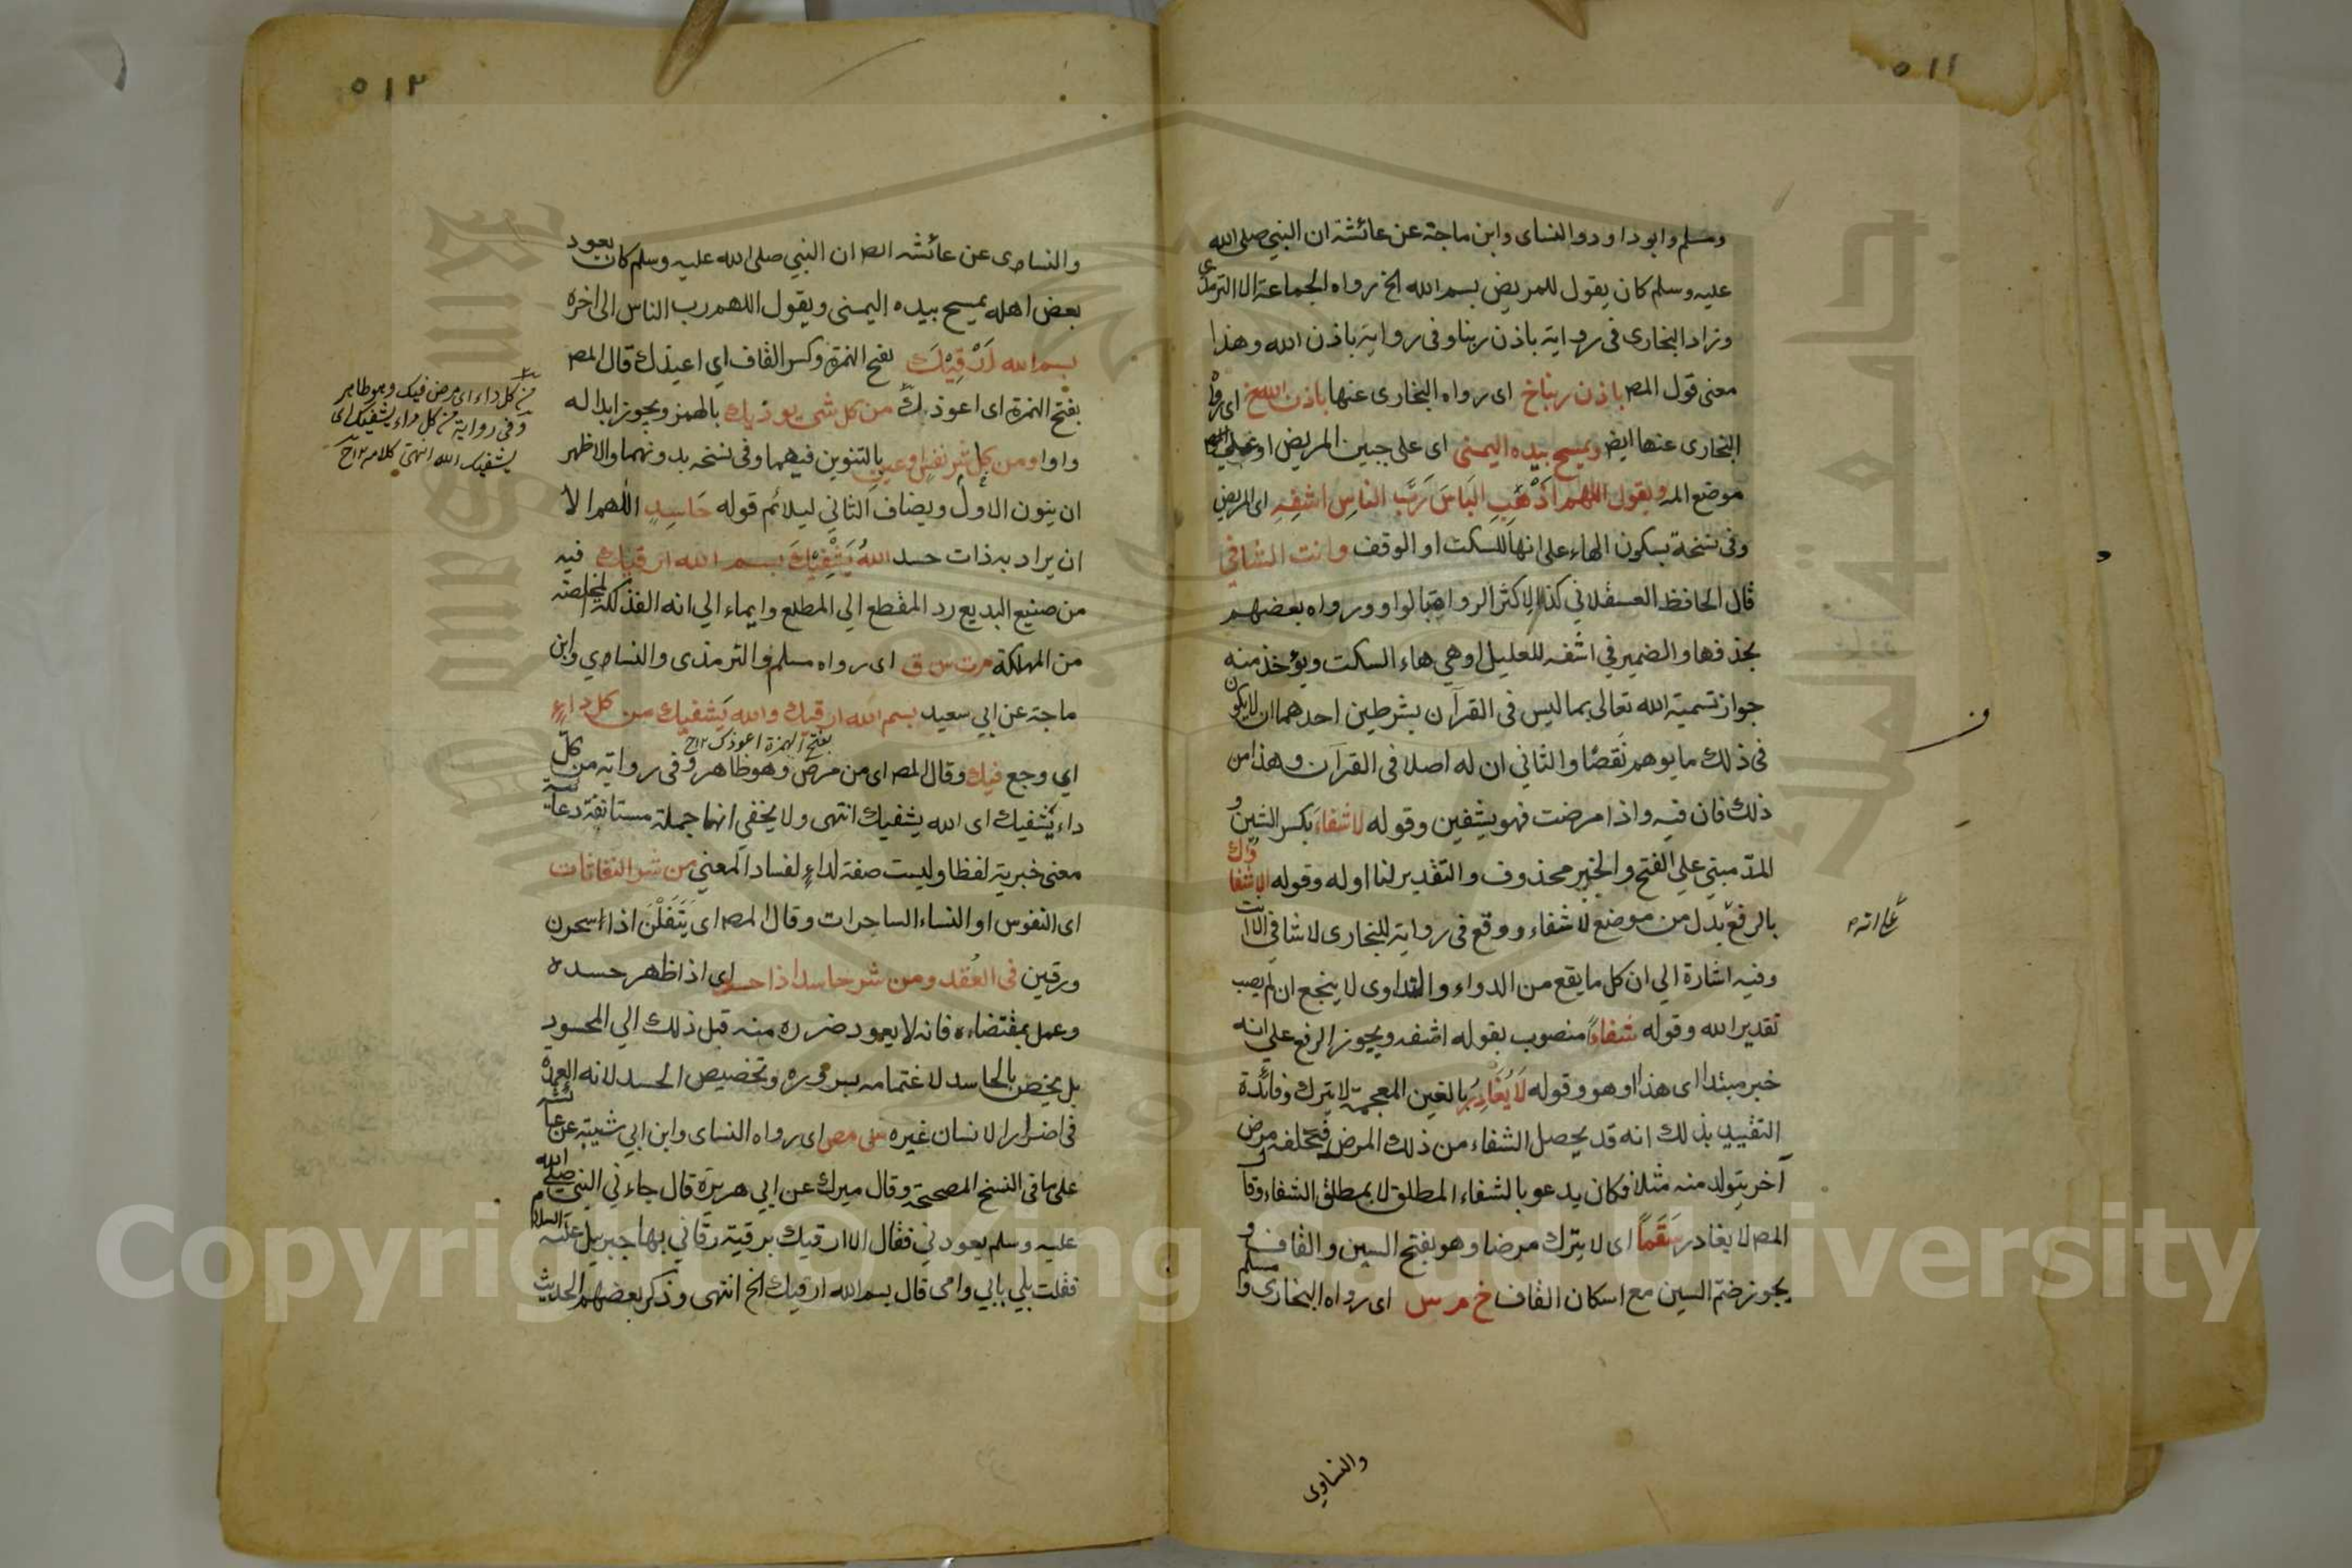 ٥١١
ومسلم وابو داود والنساى وابن ماجة عن عائشة ان النبي صلى الله
عليه وسلم كان يقول للمريض بسم الله الخ رواه الجماعة الا الترمذى
وزاد البخارى فى رواية باذن ربنا وفى رواية باذن الله وهذا
معنى قول المص باذن ربنا خ اى رواه البخارى عنها باذن الله خ اى رواه
البخارى عنها ايض ويمسح بيده اليمنى اى على جبين المريض او على
موضع الم ويقول اللهم اَذْهِبِ البَاسَ رَبَّ الناسِ اشفِهِ اى المريض
وفى نسخة بسكون الهاء على انها للسكت او الوقف وانت الشافي
قال الحافظ العسقلاني كذا لاكثر الرواة بالواو ورواه بعضهم
بحذفها والضمير في اشفه للعليل او هي هاء السكت ويؤخذ منه
جواز تسمية الله تعالى بما ليس فى القرآن بشرطين احدهما ان لا يكون
فى ذلك ما يوهم نقصًا والثاني ان له اصلا فى القرآن وهذا من
ذلك فان فيه واذا مرضت فهو يشفين وقوله لا شفاءَ بكسر الشين و
المدّ مبني علي الفتح والخبر محذوف والتقدير لنا اوله وقوله الا شفاؤك
بالرفع بدل من موضع لا شفاء ووقع فى رواية للبخارى لا شافي الا انت
وفيه اشارة الي ان كل ما يقع من الدواء والتداوى لا ينجع ان لم يصب
تقدير الله وقوله شفاءً منصوب بقوله اشفه ويجوز الرفع على انه
خبر مبتدا اى هذا او هو وقوله لَا يُغَادِرُ بالغين المعجمة لا يترك وفائدة
التقييد بذلك انه قد يحصل الشفاء من ذلك المرض فيخلفه مرض
آخر يتولد منه مثلا فكان يدعو بالشفاء المطلق لا بمطلق الشفاء وقال
المص لا يغادر سَقَمًا اى لا يترك مرضا وهو بفتح السين والقاف و
يجوز ضم السين مع اسكان القاف خ م س اى رواه البخارى ومسلم
والنساوي
٥١٢
والنساءى عن عائشه ان النبي صلى الله عليه وسلم كان يعود
بعض اهله يمسح بيده اليمنى ويقول اللهم رب الناس الى اخره
بسم الله اَرْقِيْكَ بفتح الهمزة وكسر القاف اي اعيذك قال المص
بفتح الهمزة اى اعوذك من كل شيء يوذيك بالهمز ويجوز ابداله
واوا ومن كل شر نفسٍ وعينٍ بالتنوين فيهما وفى نسخه بدونهما والاظهر
ان ينون الاول ويضاف الثاني ليلائم قوله حَاسِدٍ اللهم الا
ان يراد به ذات حسد اللهُ يَشْفِيْكَ بسم الله ارقيك فيه
من صنيع البديع رد المقطع الي المطلع وايماء الي انه الفذلكة المخلصة
من المهلكة م ت س ق اى رواه مسلم والترمذى والنساءي وابن
ماجة عن ابي سعيد بسم الله ارقيك والله يَشفيك من كل داءٍ
بفتح الهمزة اعوذك ١٢ ح
اي وجع فيك وقال المص اى من مرض وهو ظاهر وفى رواية من كلّ
داء يَشفيك اى الله يشفيك انتهى ولا يخفي انها جملة مستانفة دعائية
معنى خبرية لفظا وليست صفة لداءٍ لفساد المعني من شر النفاثات
اى النفوس او النساء الساحرات وقال المص اى يَتَفَلْنَ اذا اسحرن
ورقين فى العُقد ومن شر حاسد اذا حسد اى اذا ظهر حسده
وعمل بمقتضاه فانه لا يعود ضرره منه قبل ذلك الي المحسود
بل يخص بالحاسد لاغتمامه بسروره وتخصيص الحسد لانه العمدة
فى اضرار الانسان غيره س مص اى رواه النساى وابن ابي شيبة عن عائشة
على ما فى النسخ المصححة وقال ميرك عن ابي هريرة قال جاءني النبي صلى الله
عليه وسلم يعودني فقال الا ارقيك برقية رقاني بها جبريل عليه السلام
فقلت بلي بابي وامى قال بسم الله ارقيك الخ انتهى وذكر بعضهم الحديث
من كل داء اى مرض فيك وهو ظاهر
وفى رواية من كل داء يشفيك اى
يشفيك الله انتهى كلامه ١٢ ح
Copyright © King Saud University